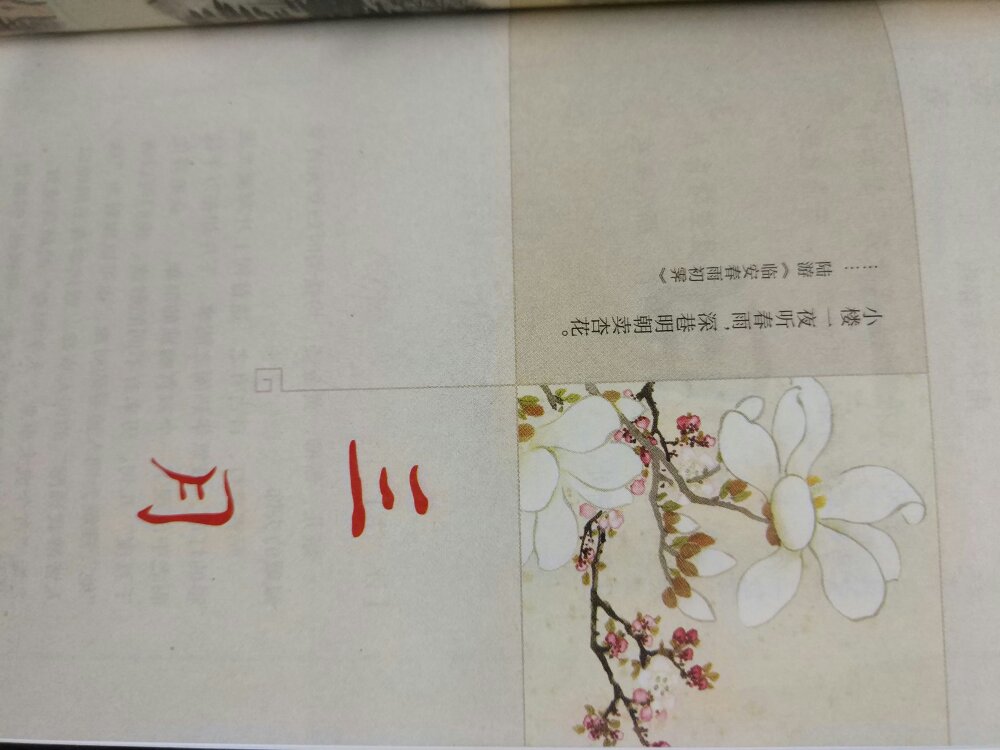 三月
小楼一夜听春雨，深巷明朝卖杏花。
……陆游《临安春雨初霁》